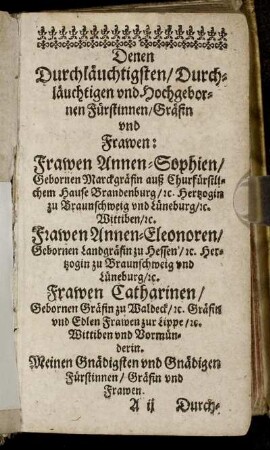 Denen
Durchläuchtigsten/ Durch-
läuchtigen vnd Hochgebor-
nen Fürstinnen/ Gräfin
vnd
Frawen:
Frawen Annen-Sophien/
Gebornen Marckgräfin auß Churfürstli-
chem Hause Brandenburg/ ꝛc. Hertzogin
zu Braunschweig vnd Lüneburg/ ꝛc.
Wittiben/ ꝛc.
Frawen Annen-Eleonoren/
Gebornen Landgräfin zu Hessen/ ꝛc. Her-
tzogin zu Braunschweig vnd
Lüneburg/ ꝛc.
Frawen Catharinen/
Gebornen Gräfin zu Waldeck/ ꝛc. Gräfin
vnd Edlen Frawen zur Lippe/ ꝛc.
Wittiben vnd Vormün-
derin.
Meinen Gnädigsten vnd Gnädigen
Fürstinnen/ Gräfin vnd
Frawen.
A ij Durch-